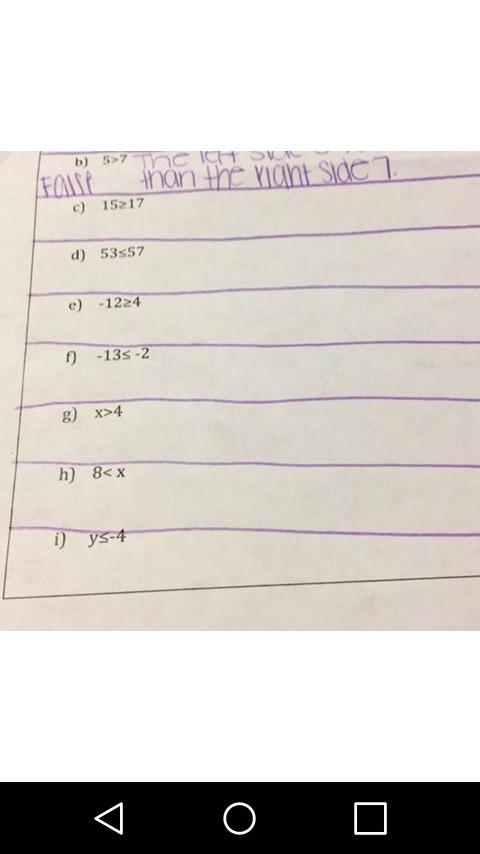 b) 5>7 The left side
False than the right side 7.
c) 15≥17
d) 53≤57
e) -12≥4
f) -13≤ -2
g) x>4
h) 8< x
i) y≤-4